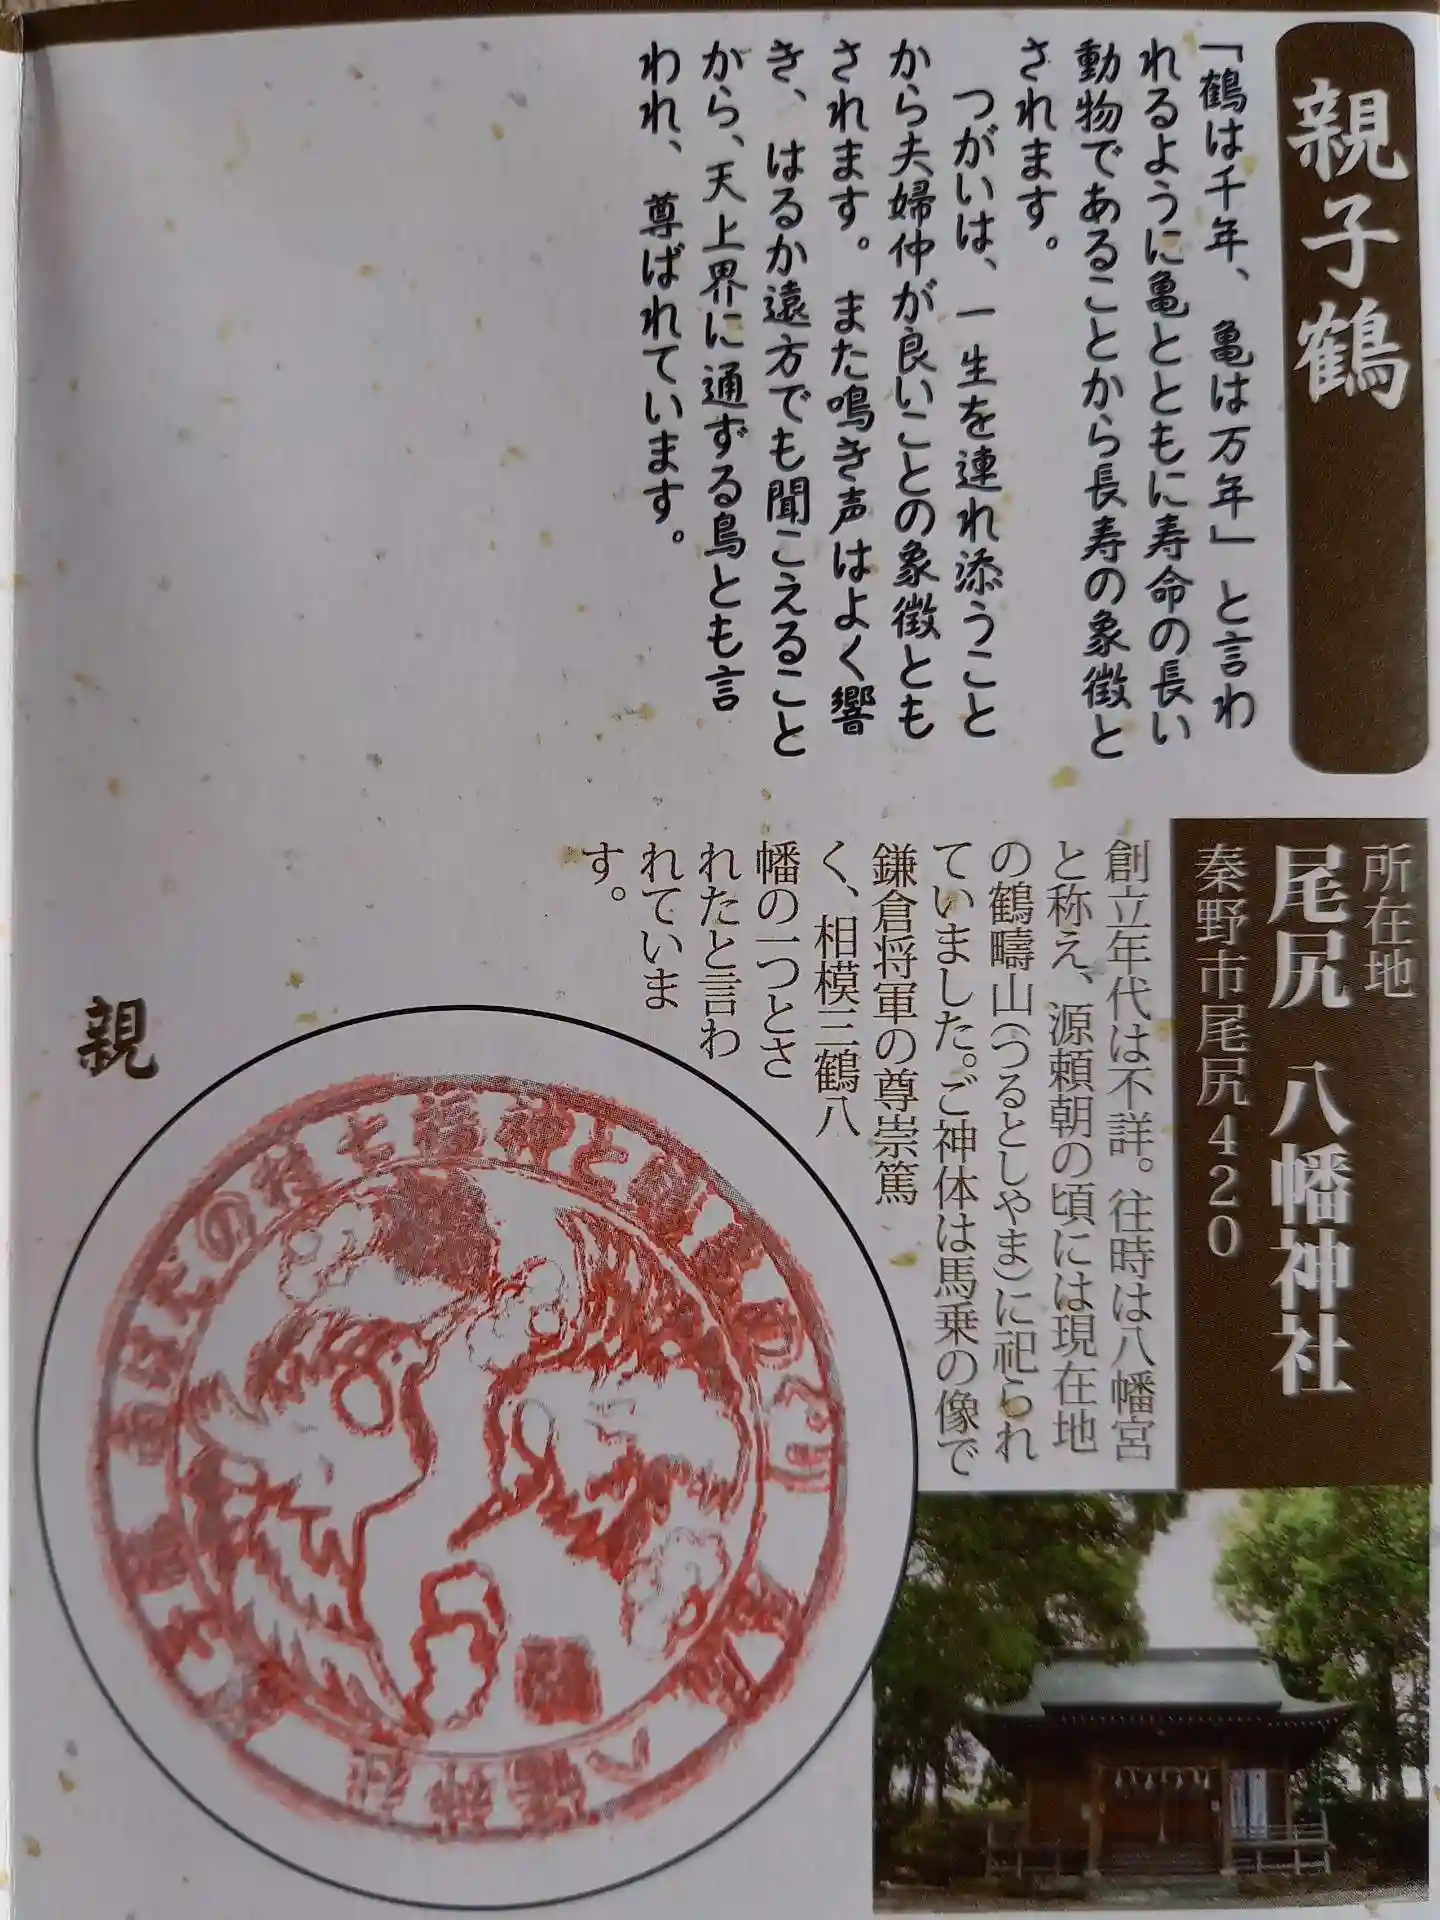 親子鶴
「鶴は千年、亀は万年」と言わ
れるように亀とともに寿命の長い
動物であることから長寿の象徴と
されます。
つがいは、一生を連れ添うこと
から夫婦仲が良いことの象徴とも
されます。また鳴き声はよく響
き、はるか遠方でも聞こえること
から、天上界に通ずる鳥とも言
われ、尊ばれています。
所在地
尾尻 八幡神社
秦野市尾尻420
創立年代は不詳。往時は八幡宮
と称え、源頼朝の頃には現在地
の鶴疇山(つるとしやま)に祀られ
ていました。ご神体は馬乗の像で
鎌倉将軍の尊崇篤
く、相模三鶴八
幡の一つとさ
れたと言わ
れていま
す。
親
八幡神社